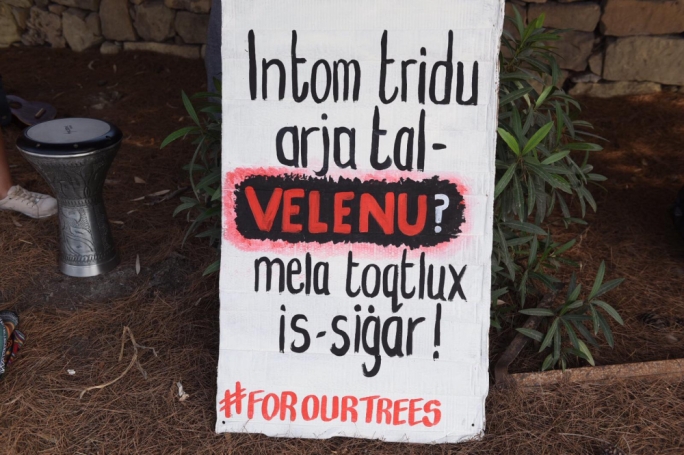 Intom tridu
arja tal-
VELENU?
mela toqtlux
is-siġar!
#FOROURTREES